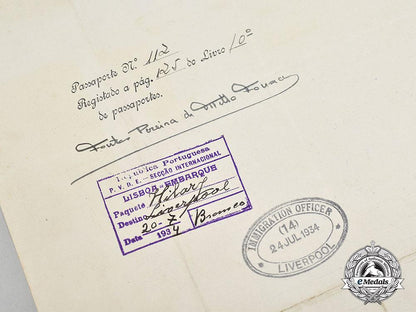 Passaporte Nº 112
Registado a pág. 125 do Livro 10º
de passaportes.
Pereira de Mello
República Portuguesa
P. V. D. E. - SECÇÃO INTERNACIONAL
LISBOA-EMBARQUE
Paquete Hilary
Destino Liverpool
Data 20-7-1934
IMMIGRATION OFFICER
(14)
24 JUL 1934
LIVERPOOL
eMedals